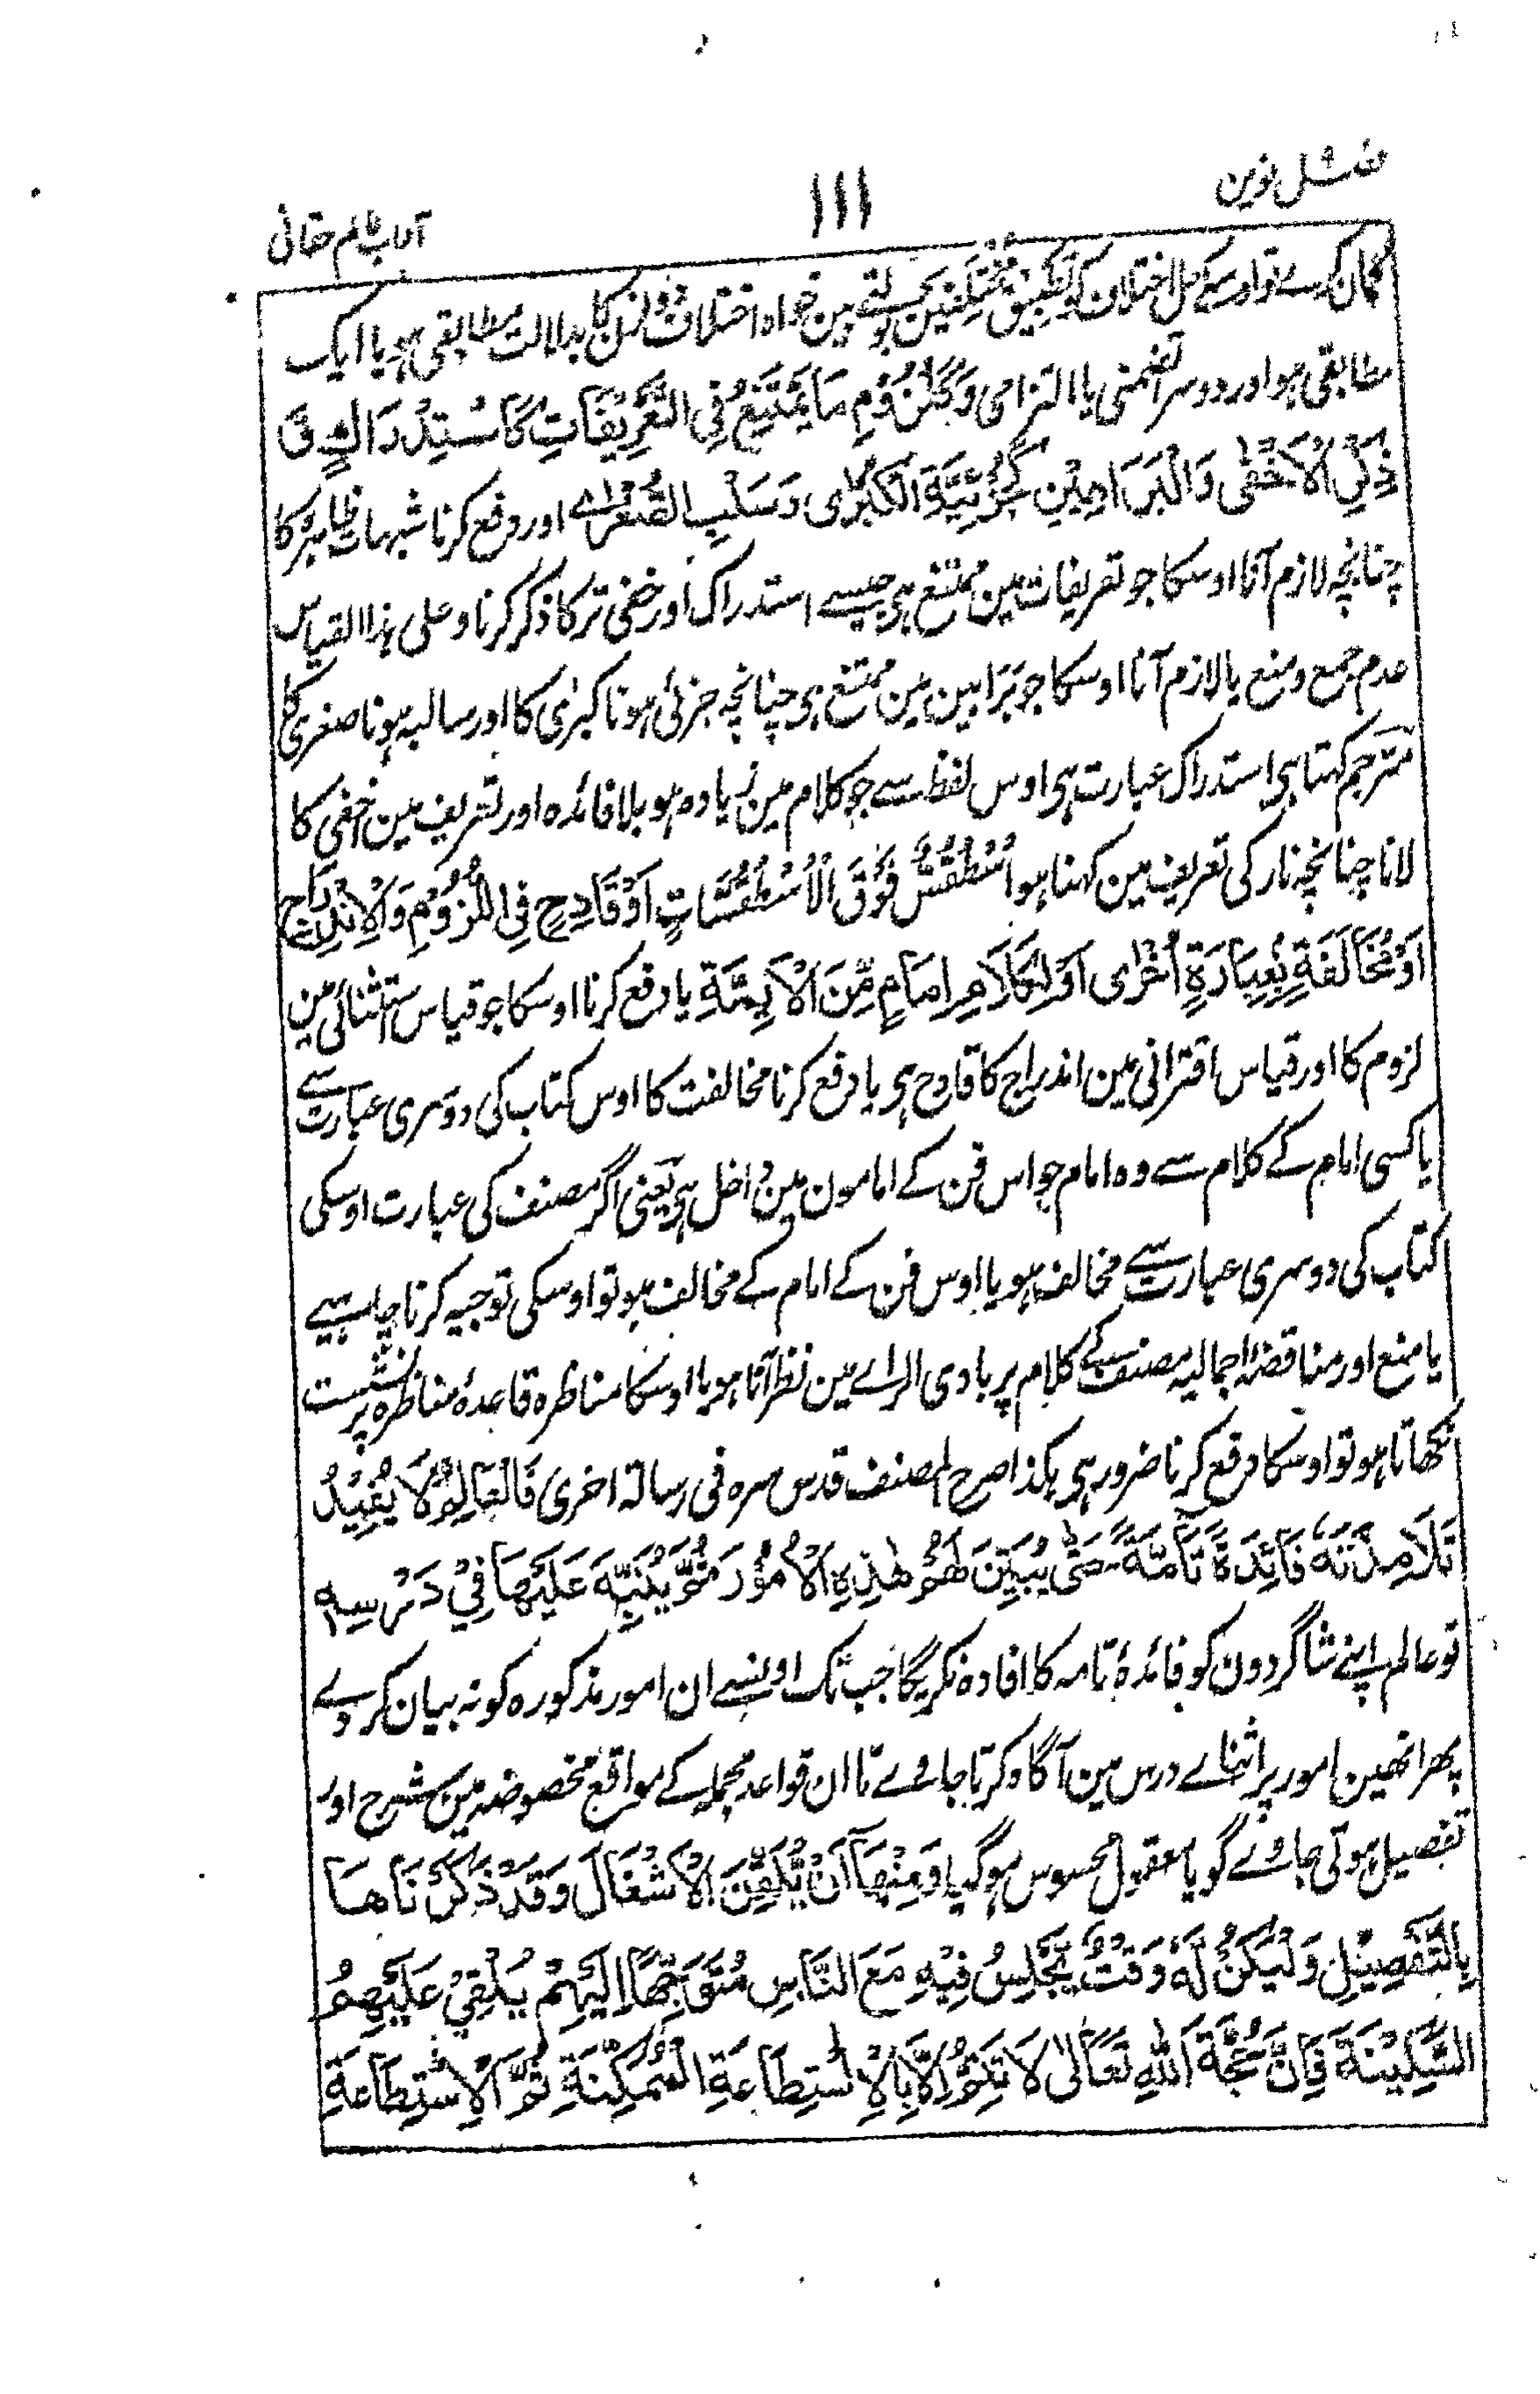 فصل نوین
۱۱۱
آداب عالم حقانی
گمان کرے تو اوسکے حل اختلاف کو تطبیق مختلفین بولتے ہین خواہ اختلاف دونون کا بدلالت مطابقی ہو یا ایک
مطابقی ہو اور دوسرا تضمنی یا التزامی وَکَلُزُوْمِ مَا یَمْتَنِعُ فِی التَّعْرِیْفَاتِ کَاسْتِدْرَاكٍ وَّ
ذِکْرِ الْاَخْفٰی وَالْبَرَاهِیْنِ کَجُزْئِیَّةِ الْکُبْرٰی وَسَلْبِ الصُّغْرٰی اور دفع کرنا شبہات ظاہرہ کا
چنانچہ لازم آنا اوسکا جو تعریفات مین ممتنع ہی جیسے استدراک اور خفی تر کا ذکر کرنا وعلی ہذا القیاس
عدم جمع و منع یا لازم آنا اوسکا جو براہین مین ممتنع ہی چنانچہ جزئی ہونا کبرٰی کا اور سالبہ ہونا صغری کا
مترجم کہتا ہی استدراک عبارت ہی اوس لفظ سے جو کلام مین زیادہ ہو بلا فائدہ اور تعریف مین اخفی کا
لانا چنانچہ نار کی تعریف مین کہنا ہو اُسْطُقُسٌّ فَوْقَ الْاُسْطُقُسَّاتِ اَوْ قَادِحٍ فِی اللُّزُوْمِ وَالْاِنْدِرَاجِ
اَوْ مُخَالَفَةٍ بِعِبَارَةٍ اُخْرٰی اَوْ لِکَلَامِ اِمَامٍ مِّنَ الْاَئِمَّةِ یا دفع کرنا اوسکا جو قیاس استثنائی مین
لزوم کا اور قیاس اقترانی مین اندراج کا قادح ہی یا دفع کرنا مخالفت کا اوس کتاب کی دوسری عبارت سے
یا کسی امام کے کلام سے وہ امام جو اس فن کے امامون مین داخل ہی یعنی اگر مصنف کی عبارت اوسکی
کتاب کی دوسری عبارت سے مخالف ہو یا اوس فن کے امام کے مخالف ہو تو اوسکی توجیہ کرنا چاہیے
یا منع اور مناقضہ اجمالیہ مصنف کے کلام پر بادی الراے مین نظر آتا ہو یا اوسکا مناظرہ قاعدۂ مناظرہ پر نشست
نکھاتا ہو تو اوسکا دفع کرنا ضرور ہی ہکذا صرح المصنف قدس سرہ فی رسالۃ اخری فَالْعَالِمُ لَا یُفِیْدُ
تَلَامِذَتَهٗ فَائِدَةً تَامَّةً حَتّٰی یُبَیِّنَ لَهُمْ هٰذِهِ الْاُمُوْرَ ثُمَّ یُنَبِّهَ عَلَیْهَا فِیْ دَرْسِهٖ
تو عالم اپنے شاگردون کو فائدۂ تامہ کا افادہ نکریگا جب تک اونسے ان امور مذکورہ کو نہ بیان کر دے
پھر انھین امور پر اثناے درس مین آگاہ کرتا جاوے تا ان قواعد مجملہ کے مواقع مخصوصہ مین شرح اور
تفصیل ہوتی جاوے گویا معقول محسوس ہوگیا وَمِنْهَا اَنْ یُّلَقِّنَ الْاَشْغَالَ وَقَدْ ذَکَرْنَاهَا
بِالتَّفْصِیْلِ وَلْیَکُنْ لَهٗ وَقْتٌ یَّجْلِسُ فِیْهِ مَعَ النَّاسِ مُتَوَجِّهًا اِلَیْهِمْ یُلْقِیْ عَلَیْهِمُ
السَّکِیْنَةَ فَاِنَّ حُجَّةَ اللهِ تَعَالٰی لَا تَتِمُّ اِلَّا بِالْاِسْتِطَاعَةِ الْمُمَکِّنَةِ ثُمَّ الْاِسْتِطَاعَةِ